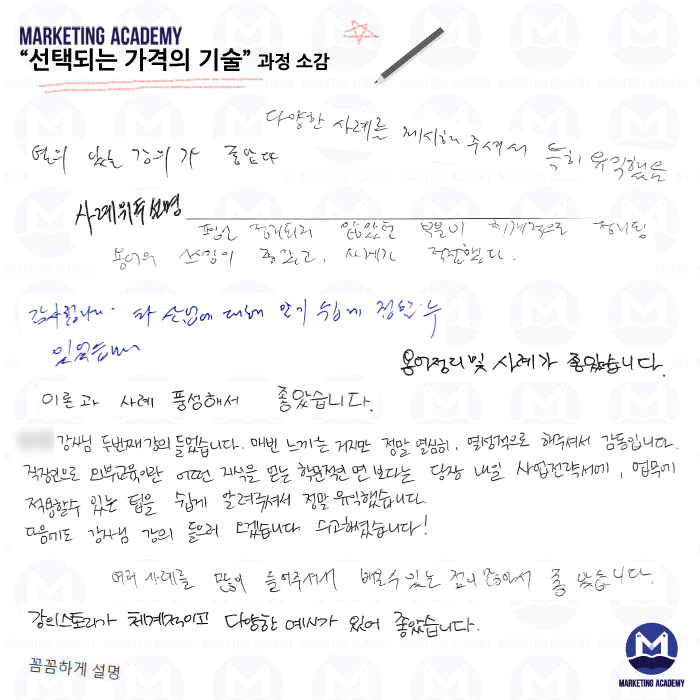 MARKETING ACADEMY
“선택되는 가격의 기술” 과정 소감
다양한 사례를 제시해 주셔서 특히 유익했음
열의 있는 강의가 좋았다
사례위주설명
평소 정리되지 않았던 부분이 체계적으로 정리됨
용어의 쓰임이 좋았고, 사례가 적절했다.
감사합니다. 타 산업에 대해 알기 쉽게 접할 수
있었습니다
용어정리 및 사례가 좋았습니다.
이론과 사례 풍성해서 좋았습니다.
강사님 두번째 강의 들었습니다. 매번 느끼는 거지만 정말 열심히, 열정적으로 해주셔서 감동입니다.
직장인으로 외부교육이란 어떤 지식을 얻는 학문적인 면 보다는 당장 내일 사업전략서에, 업무에
적용할수 있는 팁을 쉽게 알려주셔서 정말 유익했습니다.
다음에도 강사님 강의 들으러 오겠습니다 수고하셨습니다!
여러 사례를 많이 들어주셔서 배울수 있는 점이 많아서 좋았습니다.
강의스토리가 체계적이고 다양한 예시가 있어 좋았습니다.
꼼꼼하게 설명
MARKETING ACADEMY